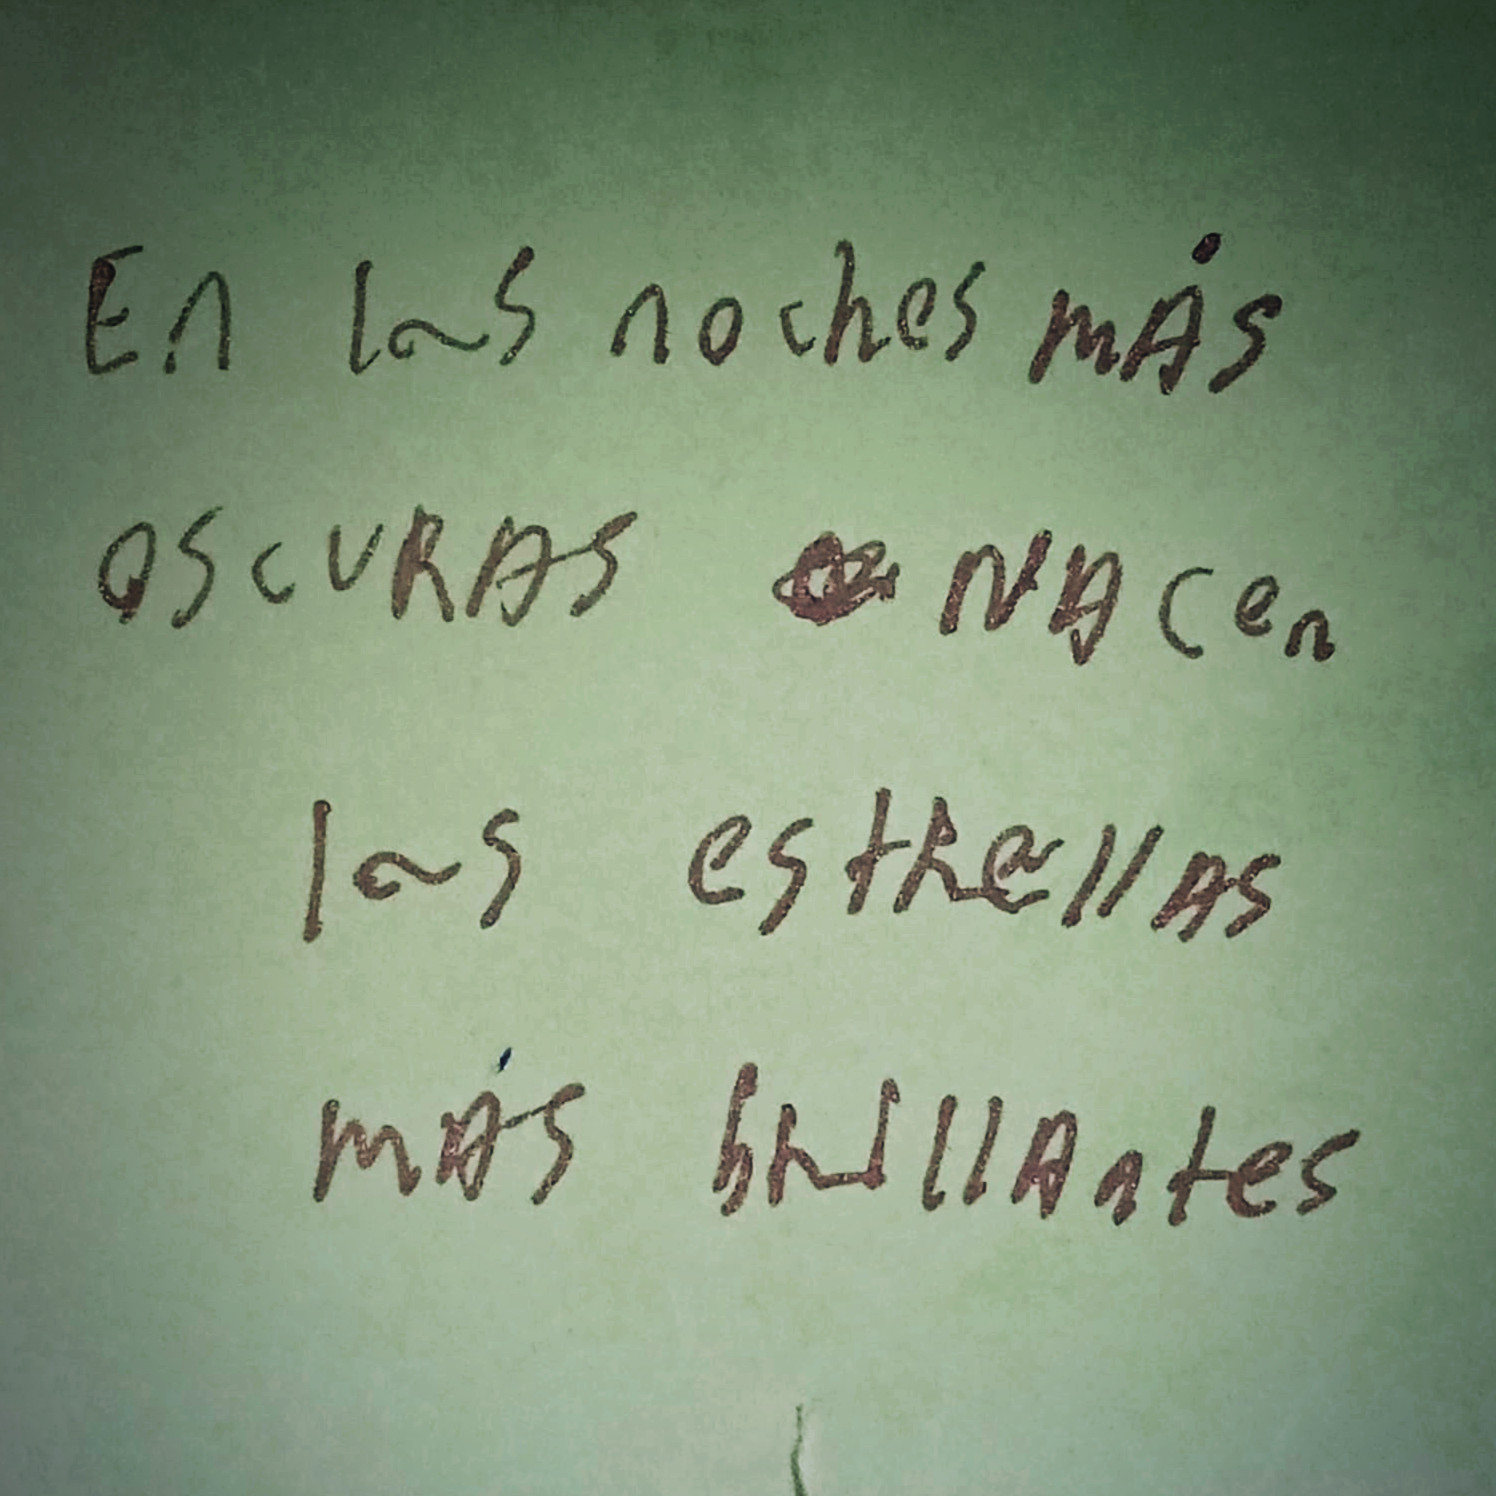 En las noches mÁs
oscuRAS NAcen
las estRellAS
mÁs bRillAntes